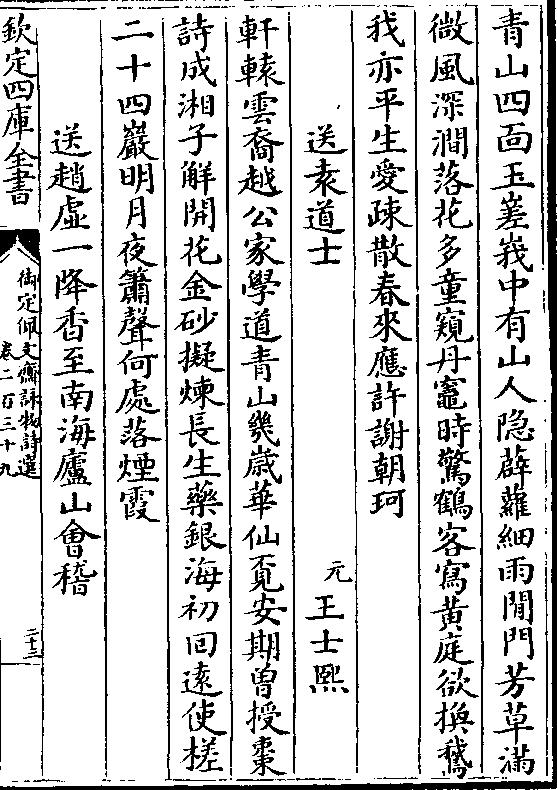 青山四面玉嵳峩中有山人隐薜蘿細雨閒門芳草滿
微風深澗落花多童窺丹竈時驚鶴客寫黄庭欲換鵞
我亦平生愛疎散春來應許謝朝珂
送袁道士
元
王士熙
軒轅雲裔越公家學道青山幾歲華仙覔安期曽授棗
詩成湘子解開花金砂擬煉長生藥銀海初回逺使槎
二十四巖明月夜簫聲何處落煙霞
送趙虚一降香至南海廬山會稽
欽定四庫全書
御定佩文齋詠物詩選
卷二百三十九
二十三